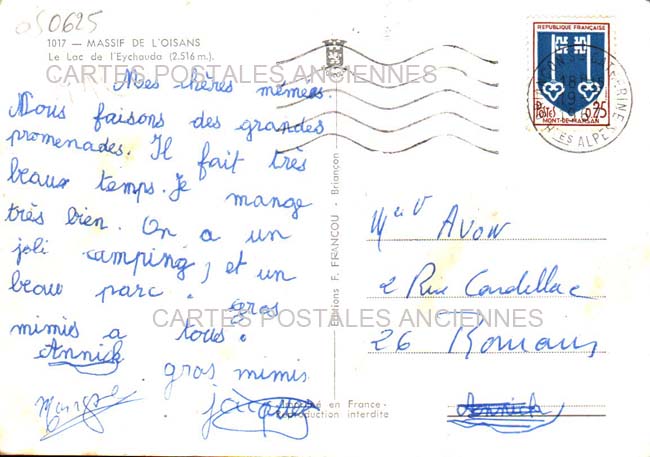 050625
1017 — MASSIF DE L'OISANS
Le Lac de l'Eychauda (2.516 m.)
CARTES POSTALES ANCIENNES
Mes chères mémées.
Nous faisons des grandes
promenades. Il fait très
beau temps. Je mange
très bien. On a un
joli camping, et un
beau parc. gros
mimis a tous.
Annick
gros mimis
Editions F. FRANCOU - Briançon
RÉPUBLIQUE FRANÇAISE
POSTES
0,25
MONT-DE-MARSAN
18
19
Avon
2 Rue
26 Romans
CARTES POSTALES ANCIENNES
Imprimé en France -
Reproduction interdite
Annick